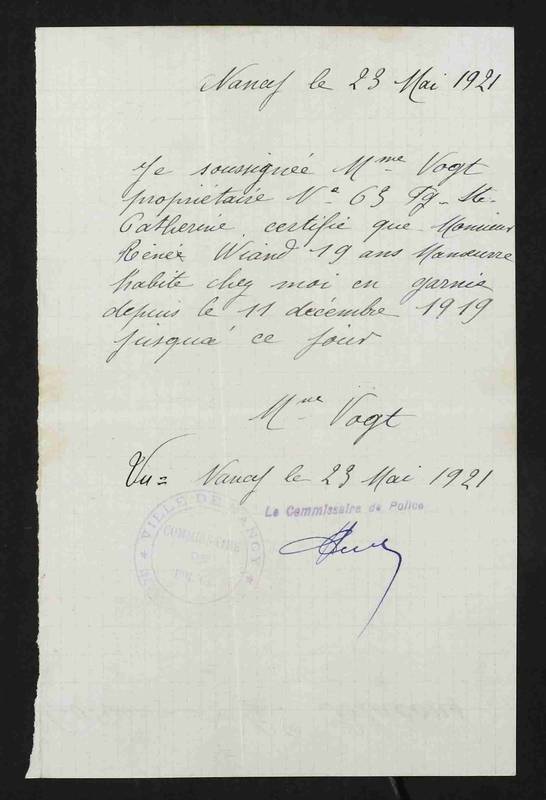 Nancy le 23 Mai 1921
Je soussignée Mme Vogt
propriétaire No 63 Fg. Ste.
Catherine, certifie que Monsieur
Rénée Wiand 19 ans Manœuvre
habite chez moi en garnie
depuis le 11 décembre 1919
jusqu'à ce jour
Mme Vogt
Vu = Nancy le 23 Mai 1921
Le Commissaire de Police
VILLE DE NANCY
COMMISSAIRE
DE
POLICE